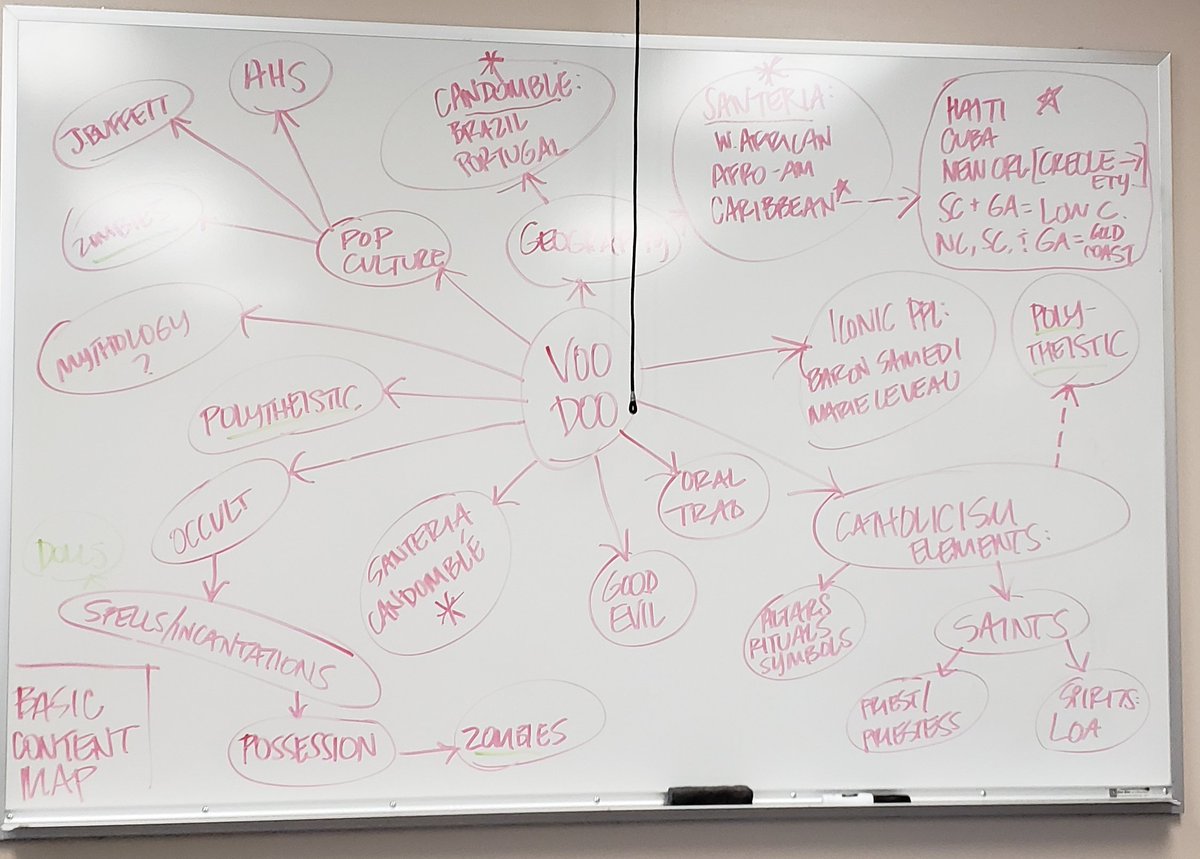 J. BUFFETT
AHS
ZOMBIES
POP
CULTURE
*
CANDOMBLE:
BRAZIL
PORTUGAL
GEOGRAPHY
*
SANTERIA:
W. AFRICAN
AFRO-AM
CARIBBEAN
HAITI
CUBA
NEW ORL [CREOLE →]
ETY
SC + GA = LOW C.
NC, SC, & GA = GOLD
COAST
MYTHOLOGY
?
POLYTHEISTIC
VOO
DOO
ICONIC PPL:
BARON SAMEDI
MARIE LEVEAU
POLY-
THEISTIC
OCCULT
DOLLS
SPELLS/INCANTATIONS
POSSESSION
ZOMBIES
SANTERIA
CANDOMBLÉ
*
GOOD
EVIL
ORAL
TRAD
CATHOLICISM
ELEMENTS:
ALTARS
RITUALS
SYMBOLS
SAINTS
PRIEST/
PRIESTESS
SPIRITS:
LOA
BASIC
CONTENT
MAP